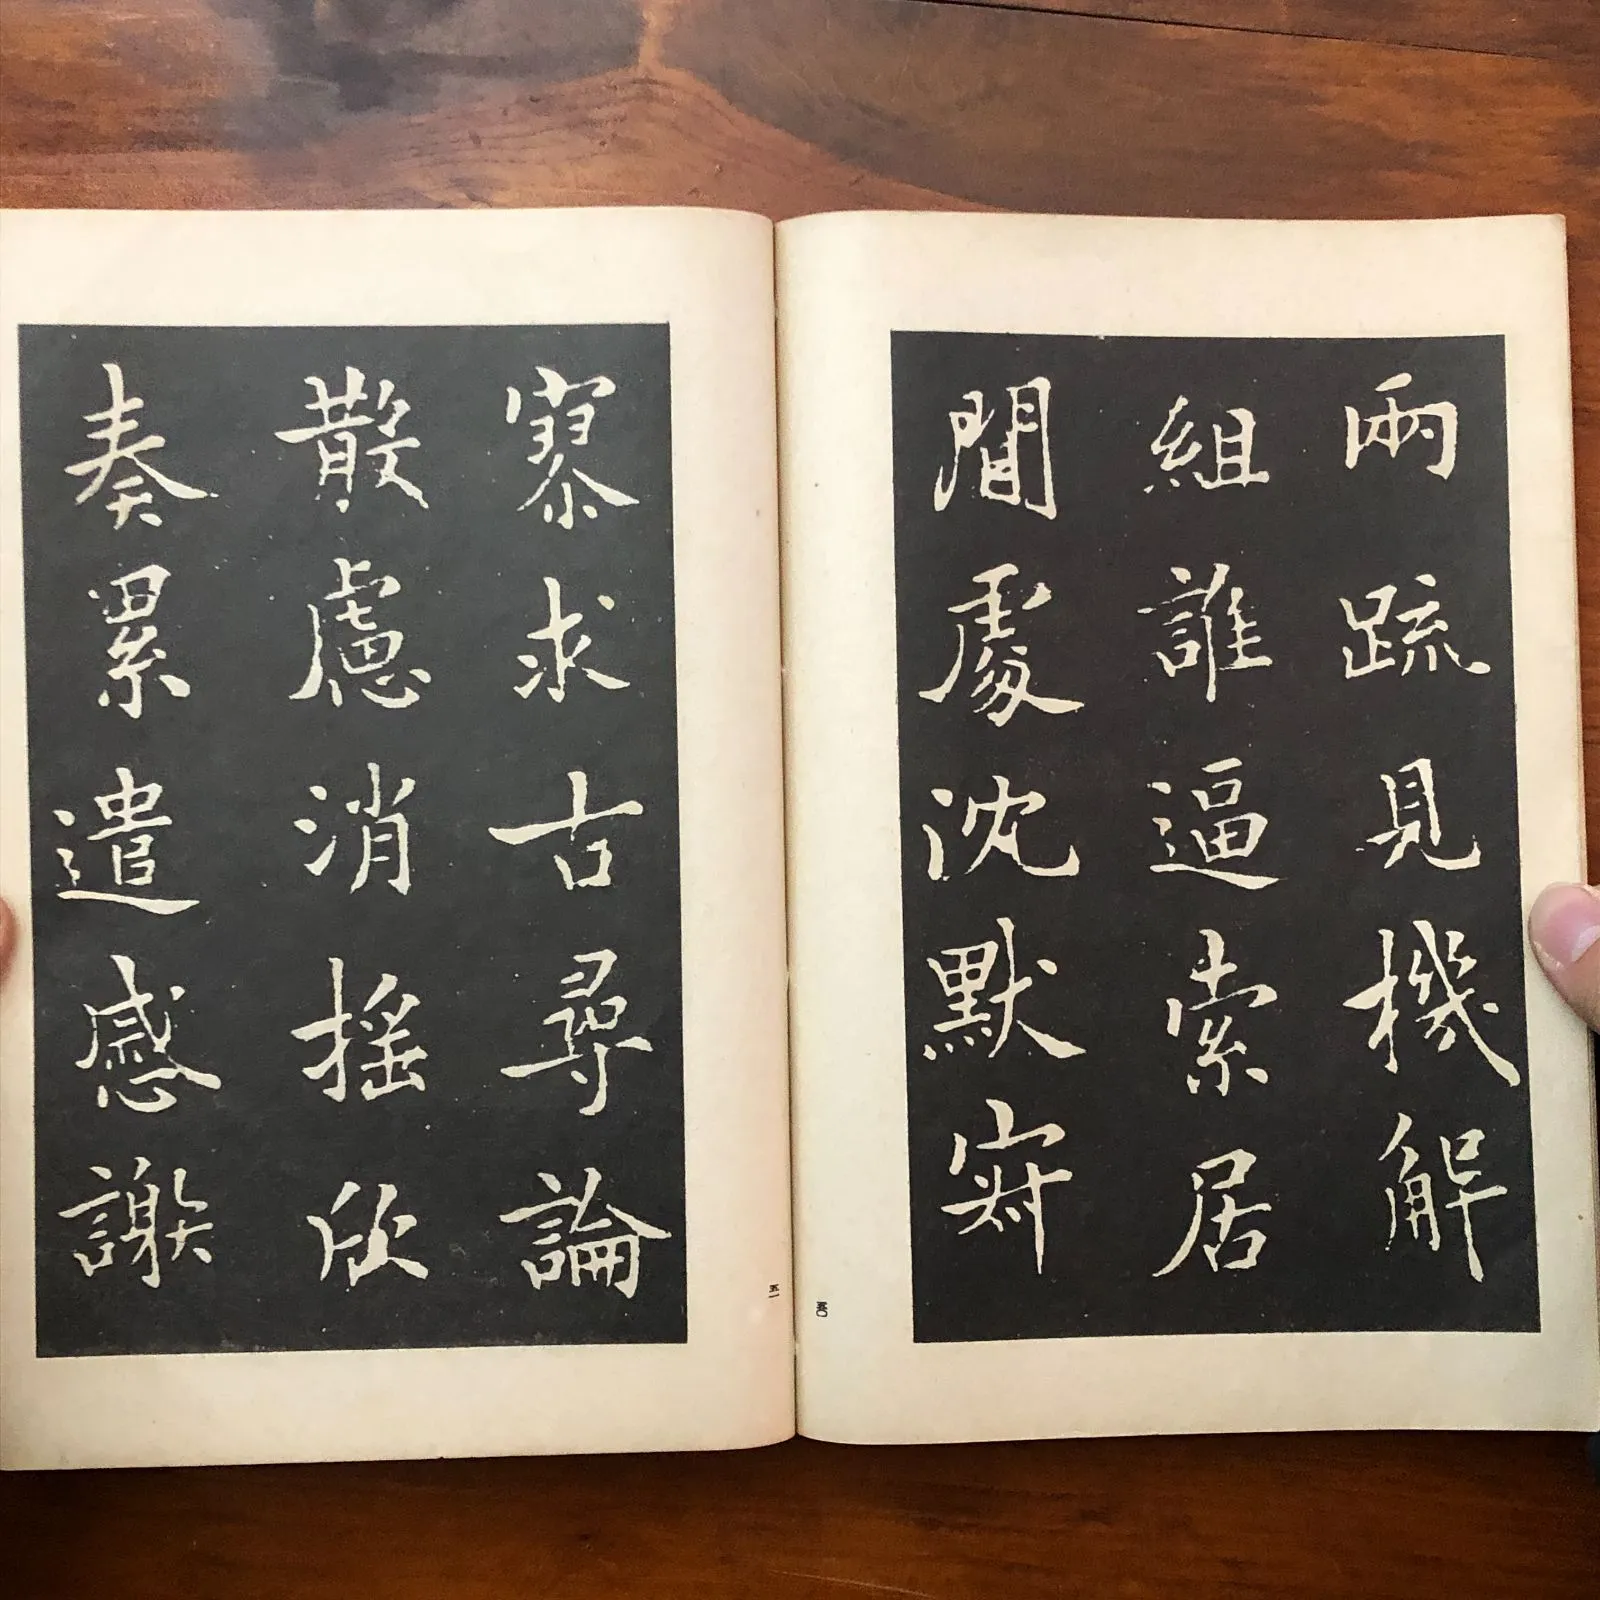 兩疏見機解
組誰逼索居
閒處沈默寂
五〇
寥求古尋論
散慮消搖欣
奏累遣感謝
五一